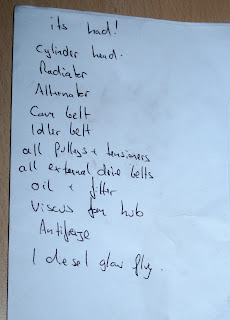 its had!
Cylinder head.
Radiator
Alternator
Cam belt
Idler belt
all pulleys + tensioners
all external drive belts
oil + filter
Viscus fan hub
Antifreeze
1 diesel glow plug.